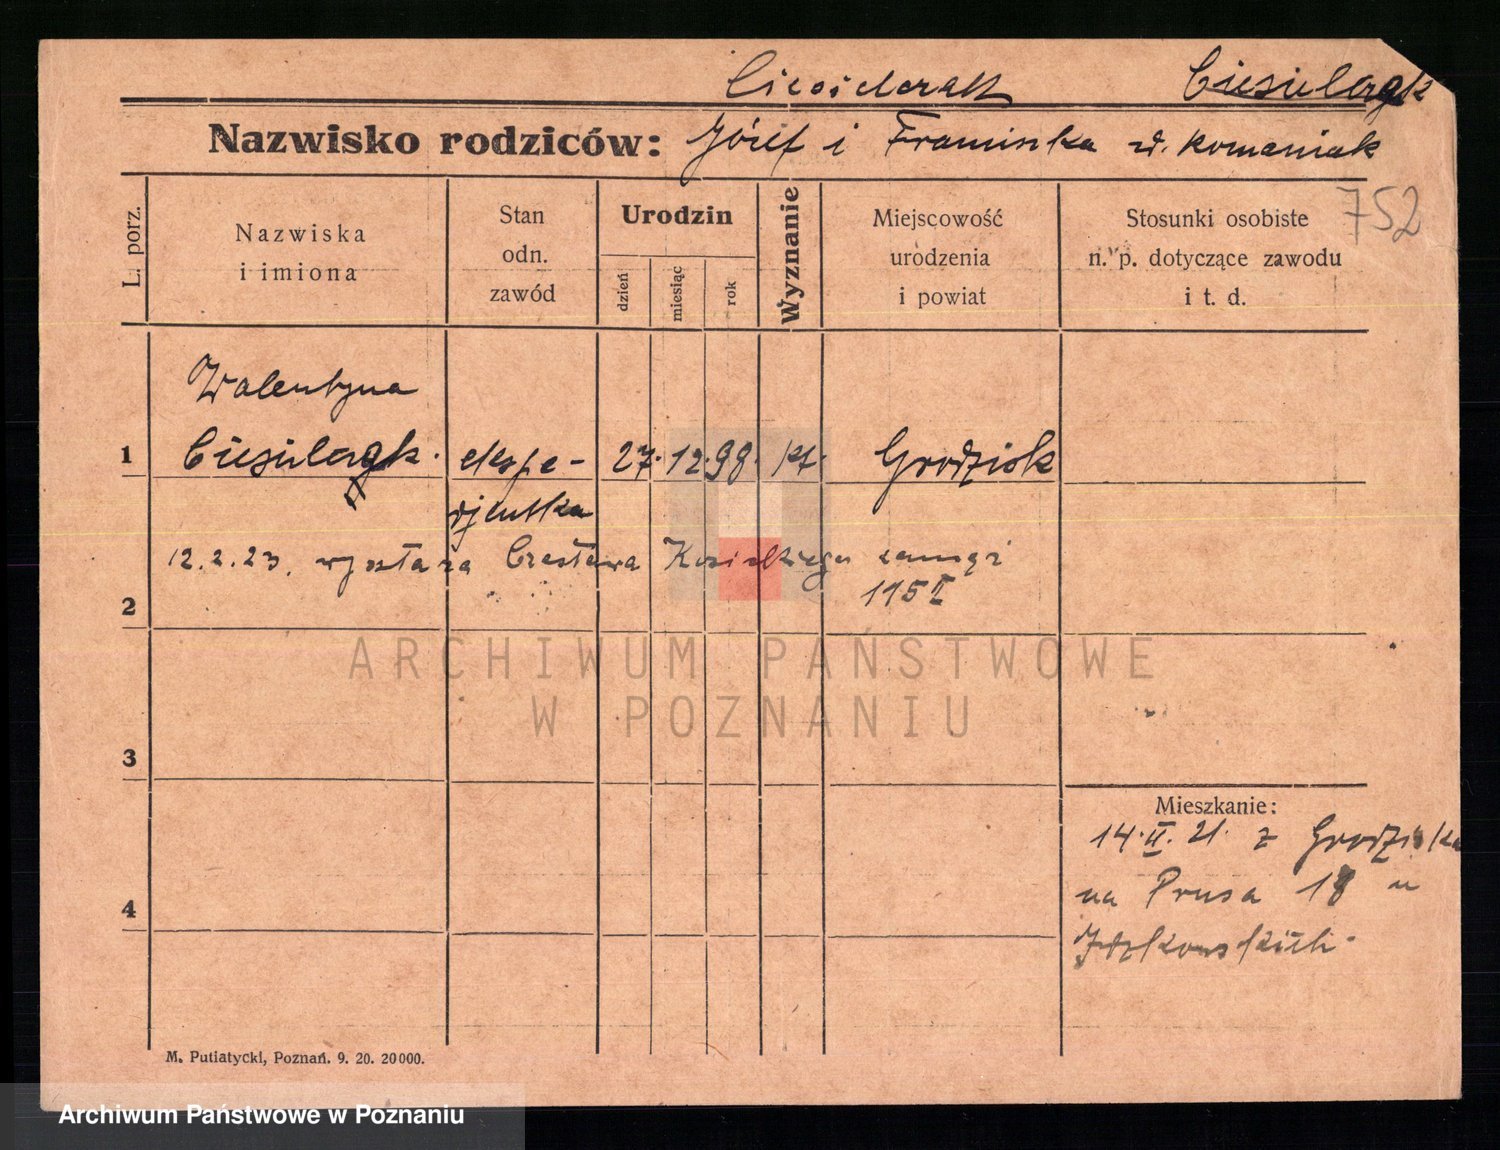 Ciesielczak Ciesielczyk
Nazwisko rodziców: Józef i Franciszka z d. Komaniak
752
L. porz.
Nazwiska
i imiona
Stan
odn.
zawód
Urodzin
dzień
miesiąc
rok
Wyznanie
Miejscowość
urodzenia
i powiat
Stosunki osobiste
n. p. dotyczące zawodu
i t. d.
Walentyna
1 Ciesielczyk ekspe- 27. 12. 98. kt. Grodzisk
djentka
12.2.23. wyszła za Czesława Kosickiego zamąż
115 II
2
ARCHIWUM PAŃSTWOWE
W POZNANIU
3
Mieszkanie:
14. II. 21. z Grodziska
4
na Prusa 18 u
M. Putiatycki, Poznań. 9. 20. 20000.
Archiwum Państwowe w Poznaniu